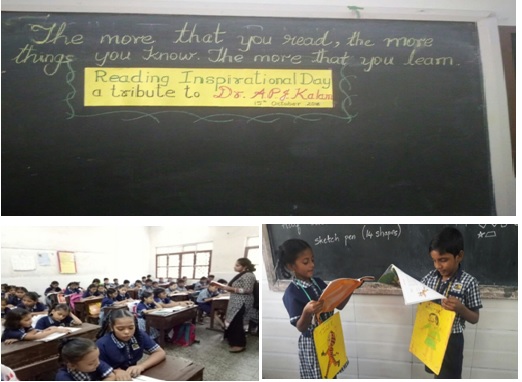 The more that you read, the more
things you know. The more that you learn.
Reading Inspirational Day
a tribute to Dr. APJ Kalam
15th October 2018
sketch pen (14 shapes)